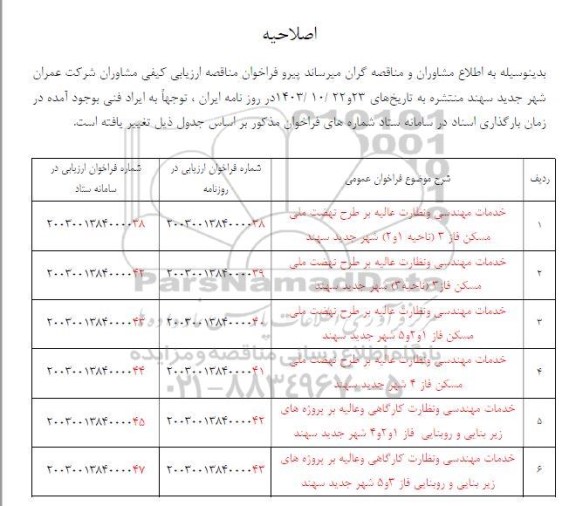 اصلاحیه
بدینوسیله به اطلاع مشاوران و مناقصه گران میرساند پیرو فراخوان مناقصه ارزیابی کیفی مشاوران شرکت عمران
شهر جدید سهند منتشره به تاریخ‌های ۲۳و۲۲ /۱۰ /۱۴۰۳در روز نامه ایران ، توجهاً به ایراد فنی بوجود آمده در
زمان بارگذاری اسناد در سامانه ستاد شماره های فراخوان مذکور بر اساس جدول ذیل تغییر یافته است.
ردیف شرح موضوع فراخوان عمومی شماره فراخوان ارزیابی در روزنامه شماره فراخوان ارزیابی در سامانه ستاد
۱ خدمات مهندسی ونظارت عالیه بر طرح نهضت ملی ۲۰۰۳۰۰۱۳۸۴۰۰۰۰۳۸ ۲۰۰۳۰۰۱۳۸۴۰۰۰۰۳۸
مسکن فاز ۳ (ناحیه ۱و۲) شهر جدید سهند
۲ خدمات مهندسی ونظارت عالیه بر طرح نهضت ملی ۲۰۰۳۰۰۱۳۸۴۰۰۰۰۳۹ ۲۰۰۳۰۰۱۳۸۴۰۰۰۰۴۲
مسکن فاز۳ (ناحیه۳) شهر جدید سهند
۳ خدمات مهندسی ونظارت عالیه بر طرح نهضت ملی ۲۰۰۳۰۰۱۳۸۴۰۰۰۰۴۰ ۲۰۰۳۰۰۱۳۸۴۰۰۰۰۴۳
مسکن فاز ۱و۲و۵ شهر جدید سهند
۴ خدمات مهندسی ونظارت عالیه بر طرح نهضت ملی ۲۰۰۳۰۰۱۳۸۴۰۰۰۰۴۱ ۲۰۰۳۰۰۱۳۸۴۰۰۰۰۴۴
مسکن فاز ۴ شهر جدید سهند
۵ خدمات مهندسی ونظارت کارگاهی وعالیه بر پروژه های ۲۰۰۳۰۰۱۳۸۴۰۰۰۰۴۲ ۲۰۰۳۰۰۱۳۸۴۰۰۰۰۴۵
زیر بنایی و روبنایی فاز ۱و۲و۴ شهر جدید سهند
۶ خدمات مهندسی ونظارت کارگاهی وعالیه بر پروژه های ۲۰۰۳۰۰۱۳۸۴۰۰۰۰۴۳ ۲۰۰۳۰۰۱۳۸۴۰۰۰۰۴۷
زیر بنایی و روبنایی فاز ۳و۵ شهر جدید سهند
ParsNamadData
پایگاه اطلاع رسانی مناقصه و مزایده
۰۲۱-۸۸۳۴۹۶۷۰-۵